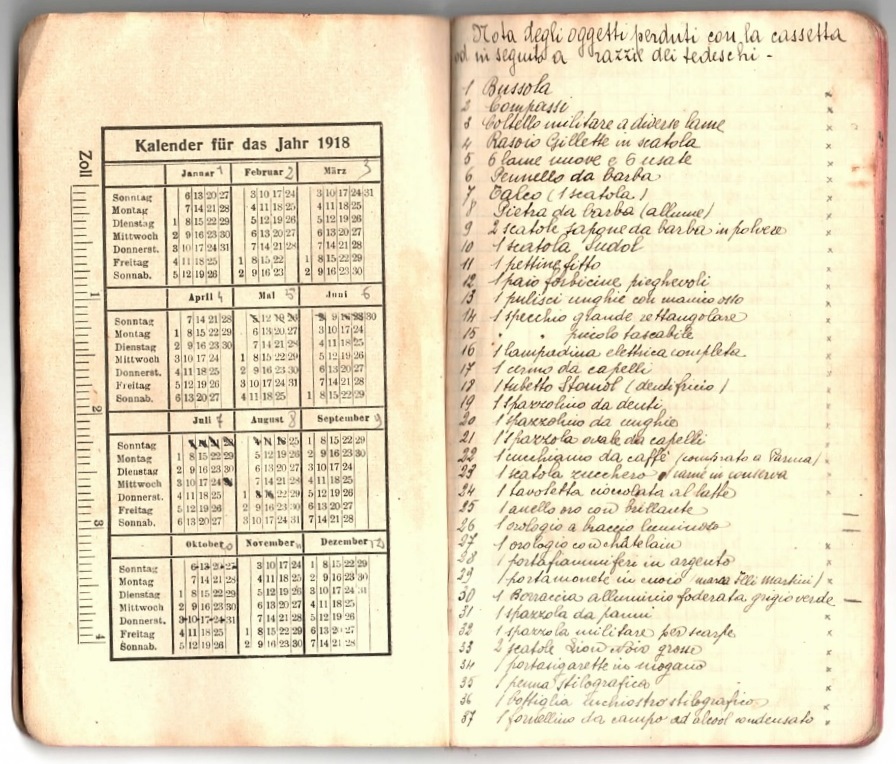 Kalender für das Jahr 1918
Zoll
1
2
3
4
Januar 1 Februar 2 März 3
Sonntag 6 13 20 27 3 10 17 24 3 10 17 24 31
Montag 7 14 21 28 4 11 18 25 4 11 18 25
Dienstag 1 8 15 22 29 5 12 19 26 5 12 19 26
Mittwoch 2 9 16 23 30 6 13 20 27 6 13 20 27
Donnerst. 3 10 17 24 31 7 14 21 28 7 14 21 28
Freitag 4 11 18 25 1 8 15 22 1 8 15 22 29
Sonnab. 5 12 19 26 2 9 16 23 2 9 16 23 30
April 4 Mai 5 Juni 6
Sonntag 7 14 21 28 5 12 19 26 2 9 16 23 30
Montag 1 8 15 22 29 6 13 20 27 3 10 17 24
Dienstag 2 9 16 23 30 7 14 21 28 4 11 18 25
Mittwoch 3 10 17 24 1 8 15 22 29 5 12 19 26
Donnerst. 4 11 18 25 2 9 16 23 30 6 13 20 27
Freitag 5 12 19 26 3 10 17 24 31 7 14 21 28
Sonnab. 6 13 20 27 4 11 18 25 1 8 15 22 29
Juli 7 August 8 September 9
Sonntag 7 14 21 28 4 11 18 25 1 8 15 22 29
Montag 1 8 15 22 29 5 12 19 26 2 9 16 23 30
Dienstag 2 9 16 23 30 6 13 20 27 3 10 17 24
Mittwoch 3 10 17 24 7 14 21 28 4 11 18 25
Donnerst. 4 11 18 25 1 8 15 22 29 5 12 19 26
Freitag 5 12 19 26 2 9 16 23 30 6 13 20 27
Sonnab. 6 13 20 27 3 10 17 24 31 7 14 21 28
Oktober November Dezember
Sonntag 6 13 20 27 3 10 17 24 1 8 15 22 29
Montag 7 14 21 28 4 11 18 25 2 9 16 23 30
Dienstag 1 8 15 22 29 5 12 19 26 3 10 17 24 31
Mittwoch 2 9 16 23 30 6 13 20 27 4 11 18 25
Donnerst. 3 10 17 24 31 7 14 21 28 5 12 19 26
Freitag 4 11 18 25 1 8 15 22 29 6 13 20 27
Sonnab. 5 12 19 26 2 9 16 23 30 7 14 21 28
Nota degli oggetti perduti con la cassetta
od in seguito a razzie dei tedeschi -
1 Bussola x
2 Compassi x
3 Coltello militare a diverse lame x
4 Rasoio Gillette in scatola x
5 6 lame nuove e 6 usate x
6 Pennello da barba x
7 Talco (1 scatola) x
8 Pietra da barba (allume) x
9 2 scatole sapone da barba in polvere x
10 1 scatola Sudol x
11 1 pettine fitto x
12 1 paio forbicine pieghevoli x
13 1 pulisci unghie con manico osso x
14 1 specchio grande rettangolare x
15 " piccolo tascabile x
16 1 lampadina elettrica completa x
17 1 da capelli x
18 1 tubetto Stomol (dentifricio) x
19 1 spazzolino da denti x
20 1 spazzolino da unghie x
21 1 spazzola ovale da capelli x
22 1 cucchiaino da caffè (comprato a Parma) x
23 1 scatola zucchero in conserva x
24 1 tavoletta cioccolata al latte x
25 1 anello oro con brillante —
26 1 orologio a braccio luminoso —
27 1 orologio con châtelain x
28 1 portafiammiferi in argento x
29 1 portamonete in cuoio (marca F.lli Martini) x
30 1 Borraccia alluminio foderata grigio verde —
31 1 spazzola da panni x
32 1 spazzola militare per scarpe x
33 2 scatole Lion Noir grosse x
34 1 portasigarette in mogano x
35 1 penna stilografica x
36 1 bottiglia inchiostro stilografico x
37 1 fornellino da campo ad alcool condensato x